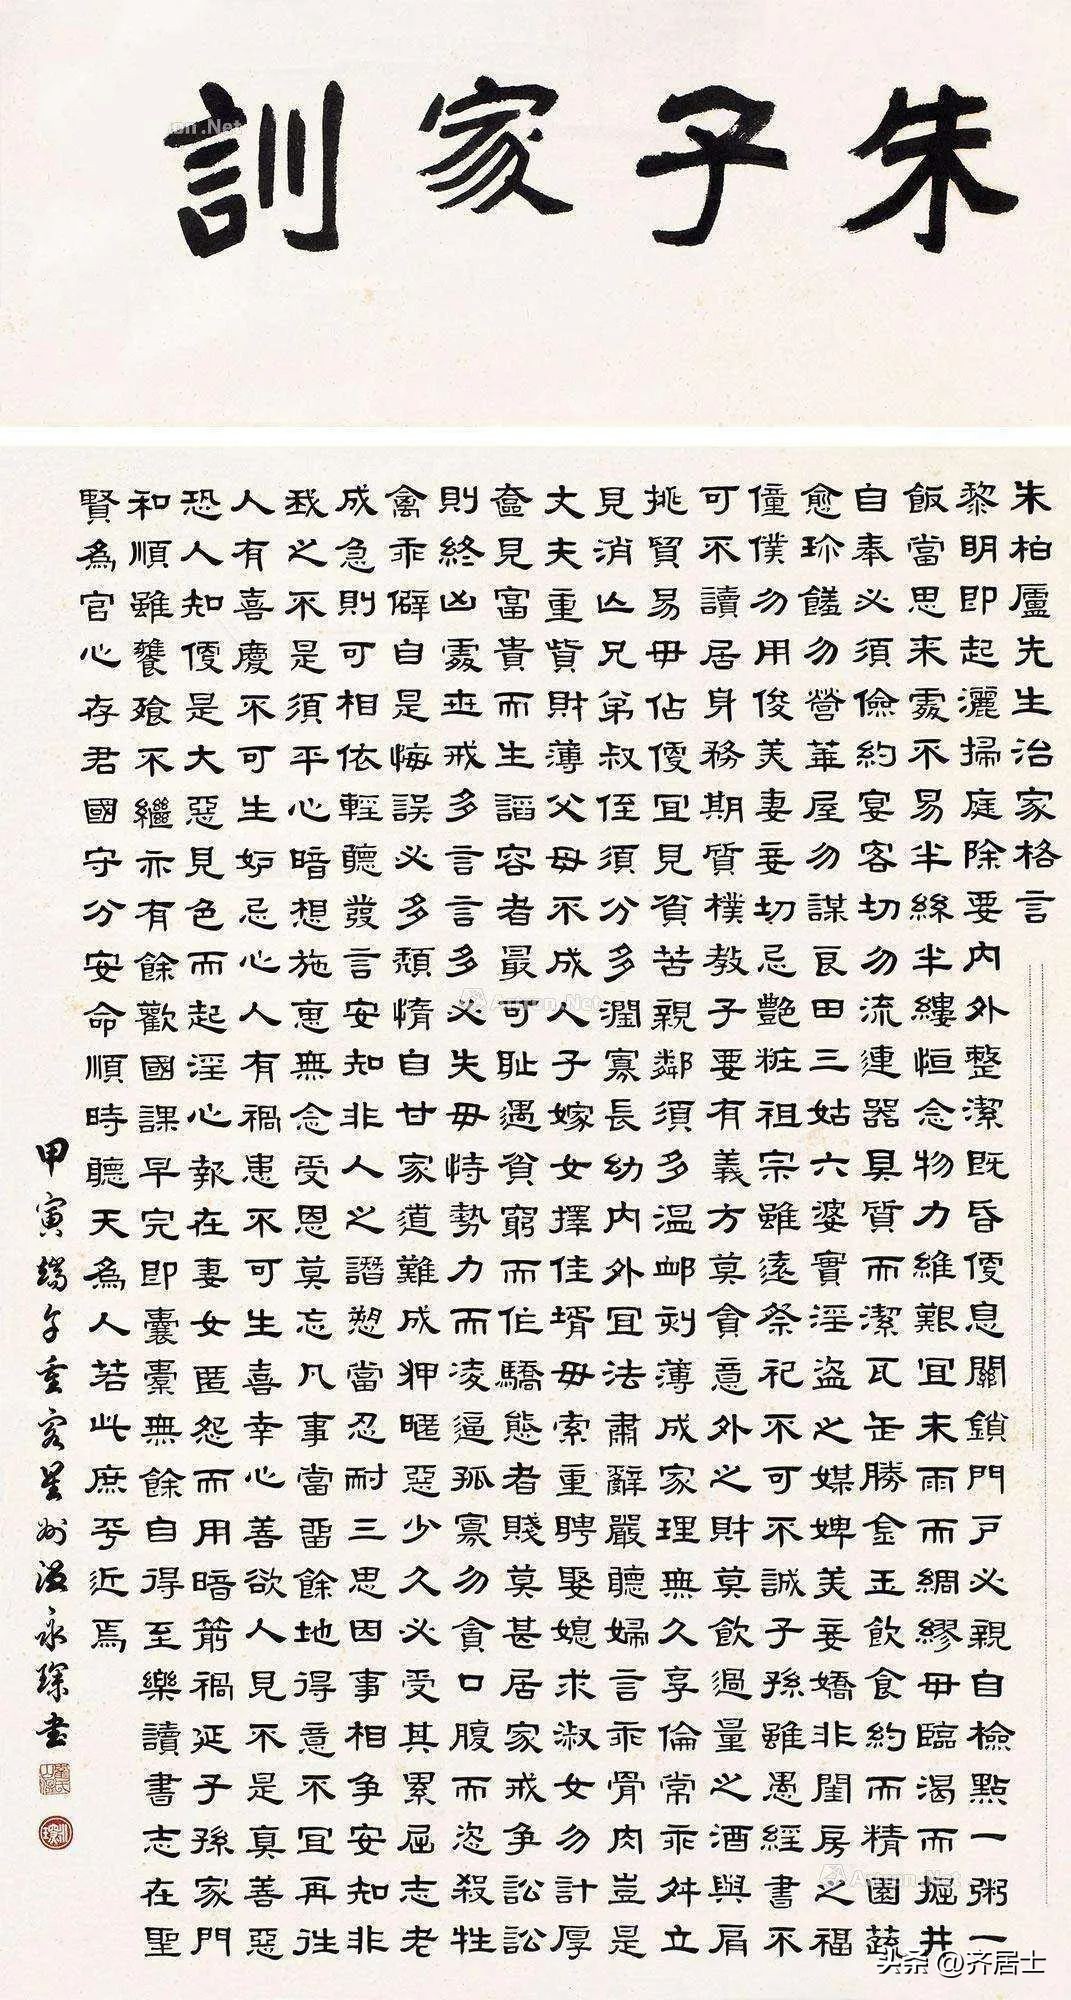 朱子家訓
朱柏廬先生治家格言
黎明即起灑掃庭除要內外整潔既昏便息關鎖門戶必親自檢點一粥一
飯當思来處不易半絲半縷恒念物力維艱宜未雨而綢繆毋臨渴而掘井
自奉必須儉約宴客切勿流連器具質而潔瓦缶勝金玉飲食約而精園蔬
愈珍饈勿營華屋勿謀良田三姑六婆實淫盜之媒婢美妾嬌非閨房之福
僮僕勿用俊美妻妾切忌艷粧祖宗雖遠祭祀不可不誠子孫雖愚經書不
可不讀居身務期質樸教子要有義方莫貪意外之財莫飲過量之酒與肩
挑貿易毋佔便宜見貧苦親鄰須多溫卹刻薄成家理無久享倫常乖舛立
見消亡兄弟叔侄須分多潤寡長幼內外宜法肅辭嚴聽婦言乖骨肉豈是
丈夫重貲財薄父母不成人子嫁女擇佳壻毋索重聘娶媳求淑女勿計厚
奩見富貴而生諂容者最可恥遇貧窮而作驕態者賤莫甚居家戒爭訟訟
則終凶處世戒多言言多必失毋恃勢力而凌逼孤寡勿貪口腹而恣殺牲
禽乖僻自是悔誤必多頹惰自甘家道難成狎暱惡少久必受其累屈志老
成急則可相依輕聽發言安知非人之譖愬當忍耐三思因事相爭安知非
我之不是須平心暗想施惠無念受恩莫忘凡事當留餘地得意不宜再往
人有喜慶不可生妒忌心人有禍患不可生喜幸心善欲人見不是真善惡
恐人知便是大惡見色而起淫心報在妻女匿怨而用暗箭禍延子孫家門
和順雖饔飧不繼亦有餘歡國課早完即囊橐無餘自得至樂讀書志在聖
賢為官心存君國守分安命順時聽天為人若此庶乎近焉
甲寅端午重客星洲永琛書
头条 @齐居士